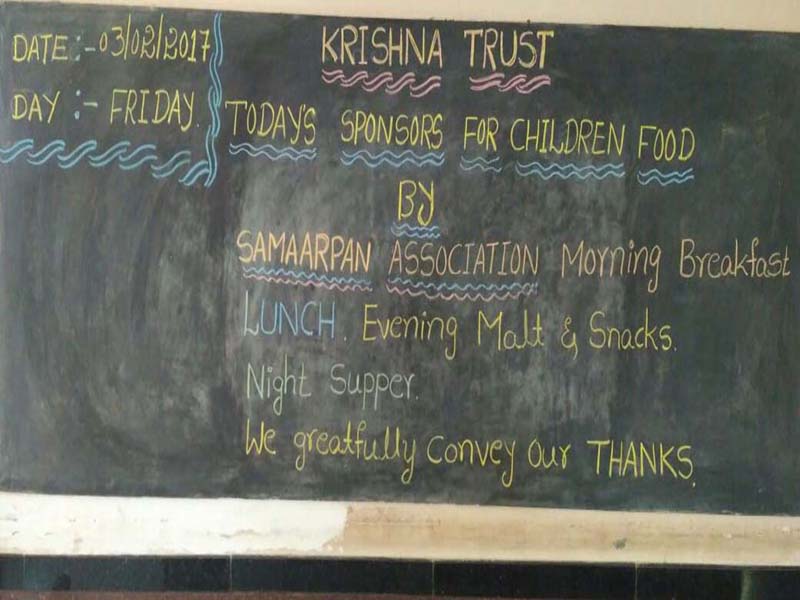 DATE :- 03/02/2017
DAY :- FRIDAY.
KRISHNA TRUST
TODAY'S SPONSORS FOR CHILDREN FOOD
BY
SAMAARPAN ASSOCIATION Morning Breakfast
LUNCH. Evening Malt & Snacks.
Night Supper.
We greatfully convey our THANKS.